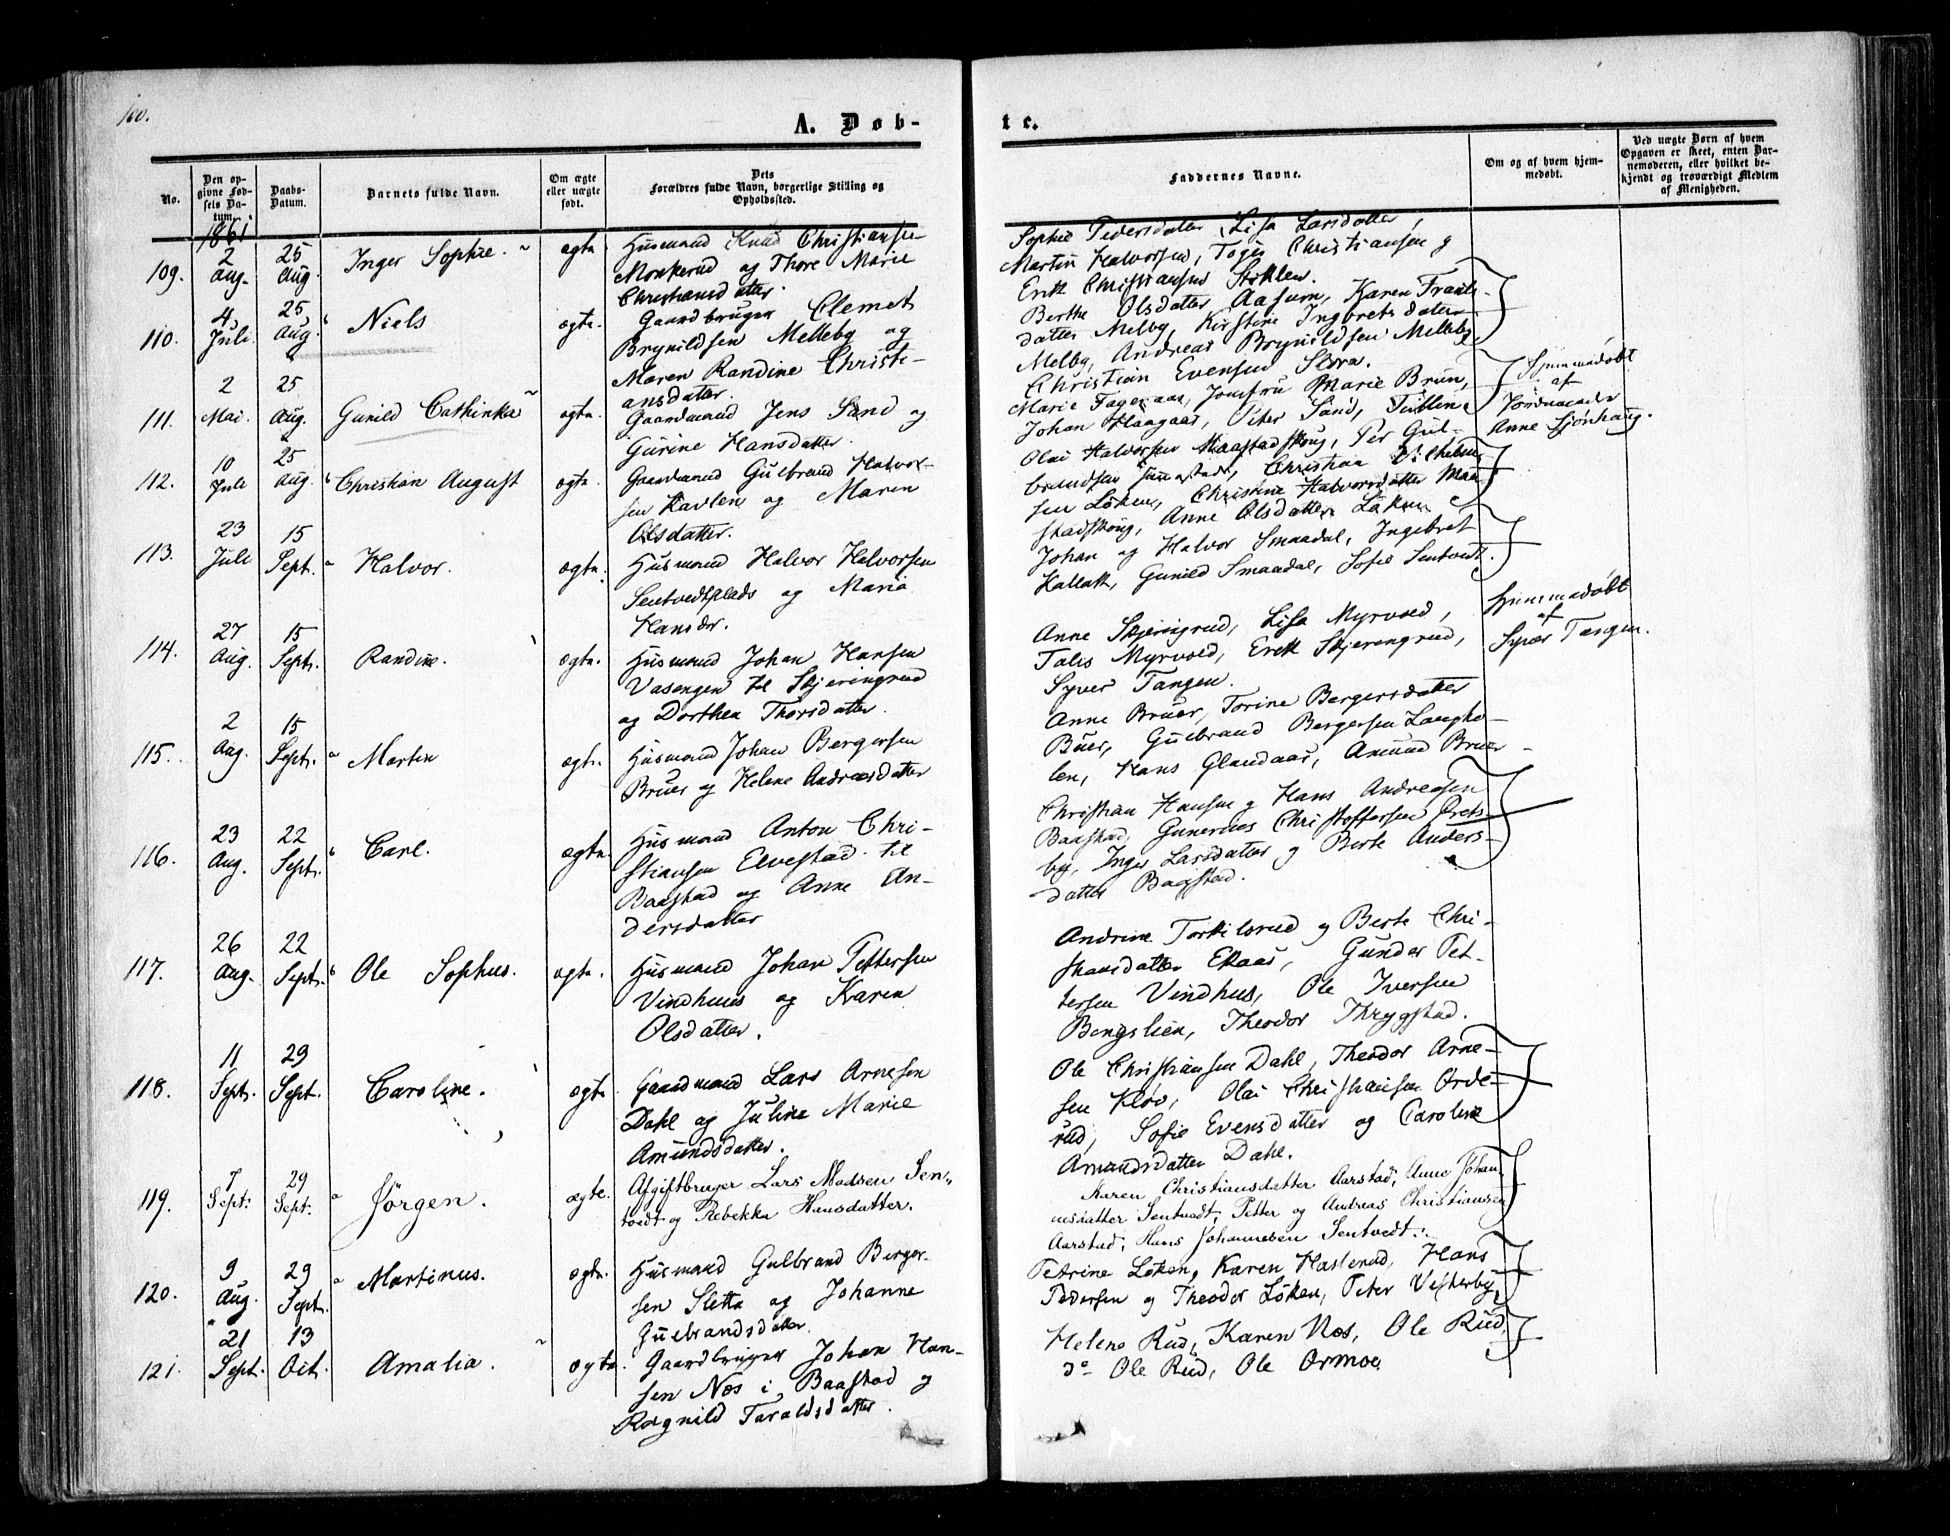 100.
A. Døb-
te.
No.
Den opgivne Fødsels Datum.
Daabs-Datum.
Barnets fulde Navn.
Om ægte eller uægte født.
Dets Forældres fulde Navn, borgerlige Stilling og Opholdssted.
Faddernes Navne.
Om og af hvem hjemmedøbt.
Ved uægte Børn af hvem Opgaven er skeet, enten Barnemoderen, eller hvilket bekjendt og troværdigt Medlem af Menigheden.
1861.
109. 2 Aug. 25 Aug. Inger Sophie. ægte
Husmand Knud Christiansen
Monkerud og Thore Marie
Christiansdatter.
Sophie Pedersdatter, Lisa Larsdatter,
Martin Halvorsen, Christiansen &
Erik Christiansen
110. 4 Juli 25 Aug. Niels ægte.
Gaardbruger Clemet
Brynildsen Melleby og
Maren Randine Christi-
ansdatter.
Berthe Olsdatter Aasum, Karen Frants-
datter Melby, Kirstine Ingbretsdatter
Melby, Andreas Brynildsen Melleby,
Christian Evensen Slora.
111. 2 Mai. 25 Aug. Gunild Cathinka ægte.
Gaardmand Jens Sand og
Gurine Hansdatter.
Marie Fageraas, Jomfru Marie Brun,
Johan Haagaas, Peter Sand,
Hjemmedøbt
af
Jordmoder
Anne Sjønhaug.
112. 10 Juli 25 Aug. Christian August ægte.
Gaardmand Gulbrand Halvor-
sen Karlen og Maren
Olsdatter.
Olai Halvorsen Maastadskoug, Per Gul-
brandsen Christian Vilhelm-
sen Løken, Christine Halvorsdatter Maa-
stadskoug, Anne Olsdatter Løken
113. 23 Juli 15 Sept. Halvor. ægte.
Husmand Halvor Halvorsen
Sentvedtplads og Maria
Hansdr.
Johan og Halvor Smaadal, Ingebret
Kallak, Gunild Smaadal, Sofie Sentvedt.
114. 27 Aug. 15 Sept. Randine. ægte.
Husmand Johan Hansen
Vasengen til Skjeringrud
og Dorthea Thorsdatter.
Anne Skjeringrud, Lisa Myrvold,
Talis Myrvold, Erik Skjerengrud,
Syver Tangen.
Hjemmedøbt
af
Syver Tangen.
115. 2 Aug. 15 Sept. Martin ægte.
Husmand Johan Bergersen
Bruer og Helene Andreasdatter
Anne Bruer, Torine Bergersdatter
Buer, Gulbrand Bergersen Langho-
len, Hans Glandaas, Amund Bruer
116. 23 Aug. 22 Sept. Carl. ægte.
Husmand Anton Chri-
stiansen Elvestad til
Baastad og Anne An-
dersdatter
Christian Hansen & Hans Andreasen
Baastad, Gunerius Christoffersen Grets-
by, Inger Larsdatter & Berte Anders-
datter Baastad.
117. 26 Aug. 22 Sept. Ole Sophus. ægte.
Husmand Johan Pettersen
Vindhuus og Karen
Olsdatter.
Andrine Torkilsrud & Berte Chri-
stiansdatter Ekaas, Gunder Pet-
tersen Vindhus, Ole Iversen
Bengslien, Theodor Thrygstad.
118. 11 Sept. 29 Sept. Caroline. ægte
Gaardmand Lars Arnesen
Dahl og Juline Marie
Amundsdatter.
Ole Christiansen Dahl, Theodor Arne-
sen Kløv, Olai Christiansen Orde-
rud, Sofie Evensdatter og Caroline
Amundsdatter Dahl.
119. 7 Sept. 29 Sept. Jörgen. ægte.
Afgiftbruger Lars Madsen Sen-
tvedt og Rebekka Hansdatter.
Karen Christiansdatter Aarstad, Anne Johan-
nesdatter Sentvedt, Petter og Andreas Christiansen
Aarstad, Hans Johannesen Sentvedt.
120. 9 Aug. 29 Sept. Martinus. ægte.
Husmand Gulbrand Berger-
sen Sletta og Johanne
Gulbrandsdatter
Petrine Løken, Karen Haslerud, Hans
Pedersen og Theodor Løken, Peter Vesterby,
121. 21 Sept. 13 Oct. Amalia. ægte.
Gaardbruger Johan Han-
sen Næs i Baastad og
Ragnild Taraldsdatter.
Helene Rud, Karen Næs, Ole Rud,
do Ole Rud, Ole Ormoe